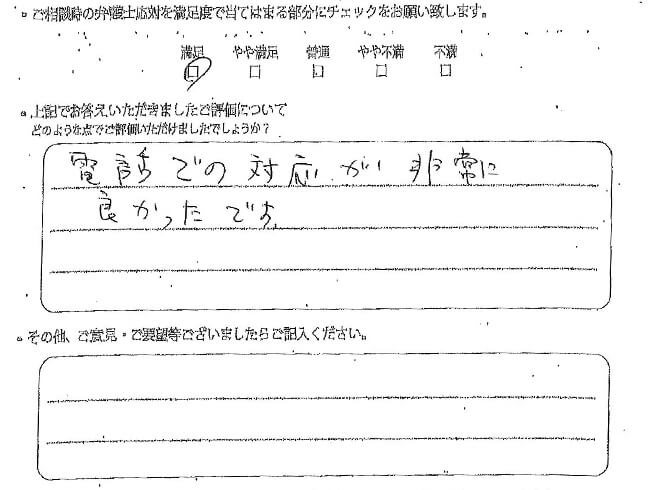 。ご相談時の弁護士応対を満足度で当てはまる部分にチェックをお願い致します。
満足 やや満足 普通 やや不満 不満
□ □ □ □ □
。上記でお答えいただきましたご評価について
どのような点でご評価いただけましたでしょうか?
電話での対応が非常に
良かったです。
。その他、ご意見・ご要望等ございましたらご記入ください。